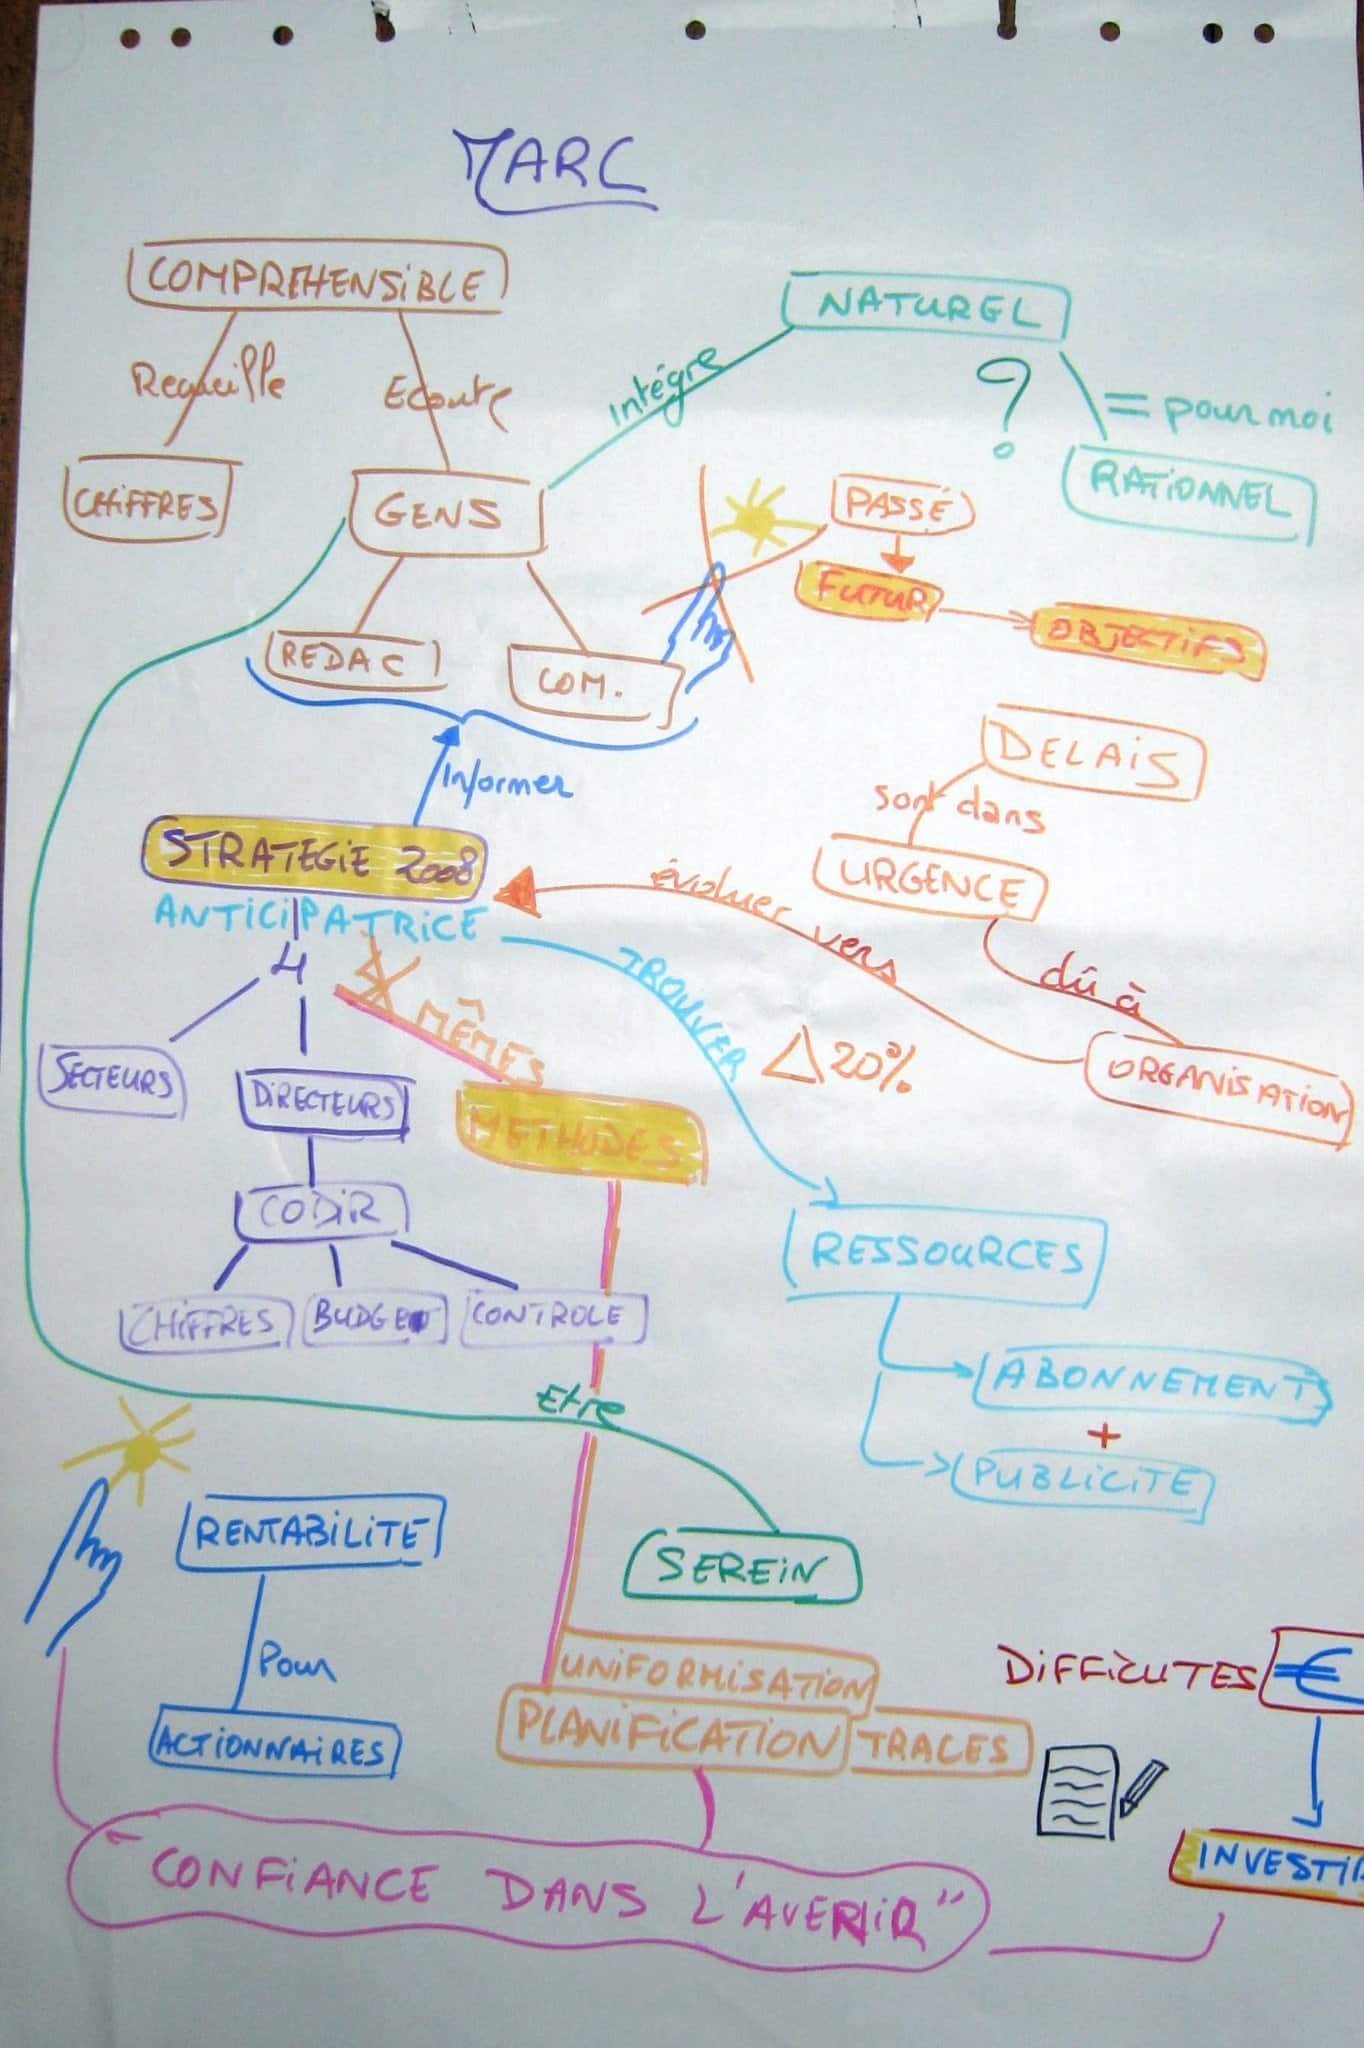 MARC
COMPREHENSiBLE
NATUREL
Recueille
Ecoute
intégre
?
= pour moi
RATIONNEL
CHiFFRES
GENS
PASSÉ
FUTUR
OBJECTIFS
REDAC
COM.
DELAiS
Informer
sont dans
STRATEGIE 2008
URGENCE
évoluer vers
ANTICIPATRICE
TROUVER
dû à
4
MÊMES
Δ 20%
ORGANISATION
SECTEURS
DiRECTEURS
METHODES
CODiR
RESSOURCES
CHiFFRES
BUDGET
CONTROLE
ABONNEMENTS
+
PUBLiCiTE
Etre
RENTABiLiTE
SEREiN
Pour
UNiFORMiSATiON
DiFFiCUTES
€
ACTiONNAiRES
PLANiFiCATiON
TRACES
INVESTIR
"CONFiANCE DANS L'AVENiR"